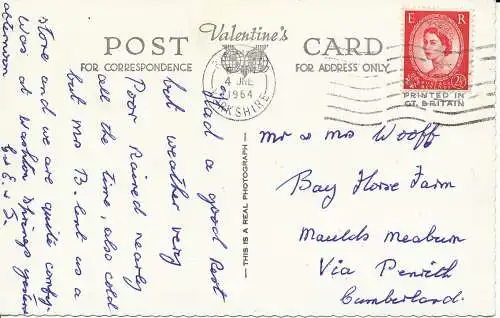 Valentine's
POST CARD
FOR CORRESPONDENCE FOR ADDRESS ONLY
E R
2½D
PRINTED IN
GT. BRITAIN
4 JNE
1964
— THIS IS A REAL PHOTOGRAPH —
Had a good Rest
but weather very
Poor Rained nearly
all the time, also cold
but Mrs B. lent us a
stove and we are quite comfy.
Was at Springs yester
afternoon
Mr & Mrs Wooff
Bay Horse Farm
Maulds Meaburn
Via Penrith
Cumberland.